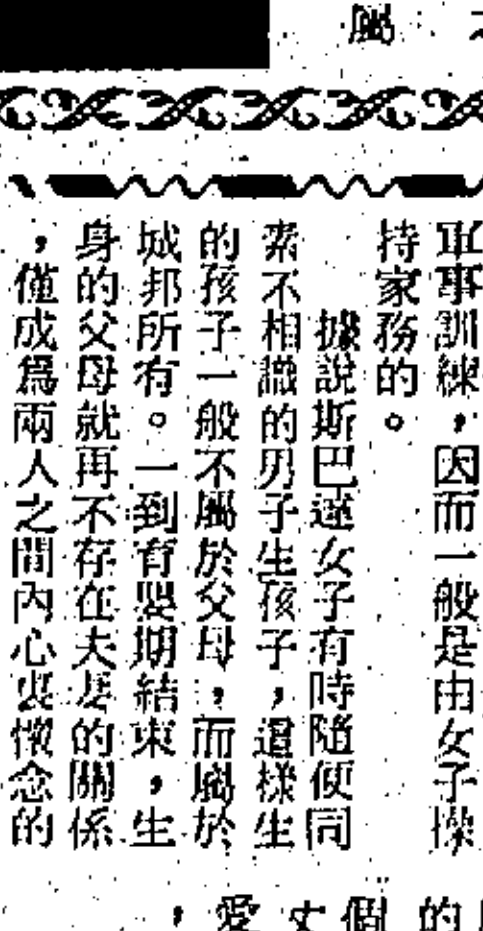 屬
軍事訓練，因而一般是由女子操
持家務的。
據說斯巴達女子有時隨便同
素不相識的男子生孩子，這樣生
的孩子一般不屬於父母，而屬於
城邦所有。一到育嬰期結束，生
身的父母就再不存在夫妻的關係
，僅成爲兩人之間內心裏懷念的
的
個
丈
愛，